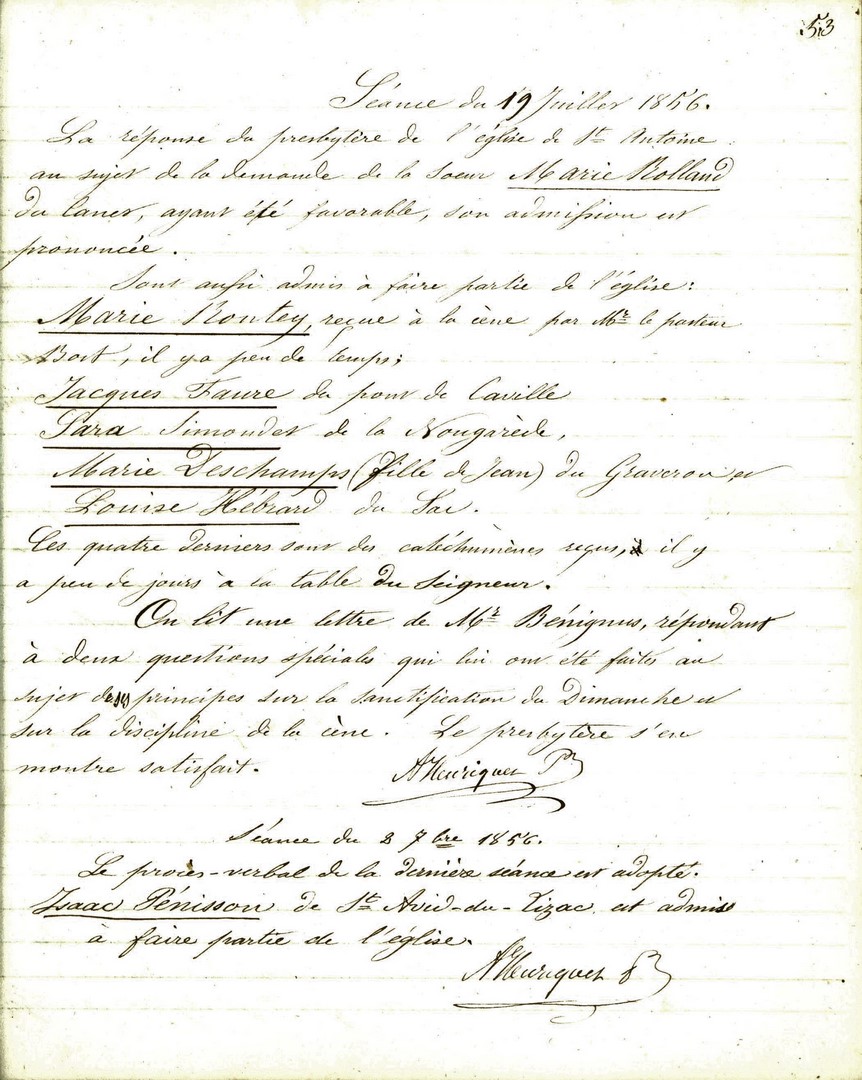 53
Séance du 19 Juillet 1856.
La réponse du presbytère de l'église de St Antoine
au sujet de la demande de la soeur Marie Rolland
du ayant été favorable, son admission est
prononcée.
Sont aussi admis à faire partie de l'église:
Marie Rontey, reçue à la cène par Mr le pasteur
il y a peu de temps;
Jacques Faure du pont de Caville
Sara Simondet de la Nougarède,
Marie Deschamps (fille de Jean) du Graveron et
Louise Hébrard du Sac.
Ces quatre derniers sont des catéchumènes reçus, il y
a peu de jours à la table du Seigneur.
On lit une lettre de Mr Bénignus, répondant
à deux questions spéciales qui lui ont été faites au
sujet de ses principes sur la sanctification du Dimanche et
sur la discipline de la cène. Le presbytère s'en
montre satisfait.
A Henriquet Pr
Séance du 2 7bre 1856.
Le procès-verbal de la dernière séance est adopté.
Isaac Pénisson de St Avid-du-Tizac est admis
à faire partie de l'église.
A Henriquet Pr